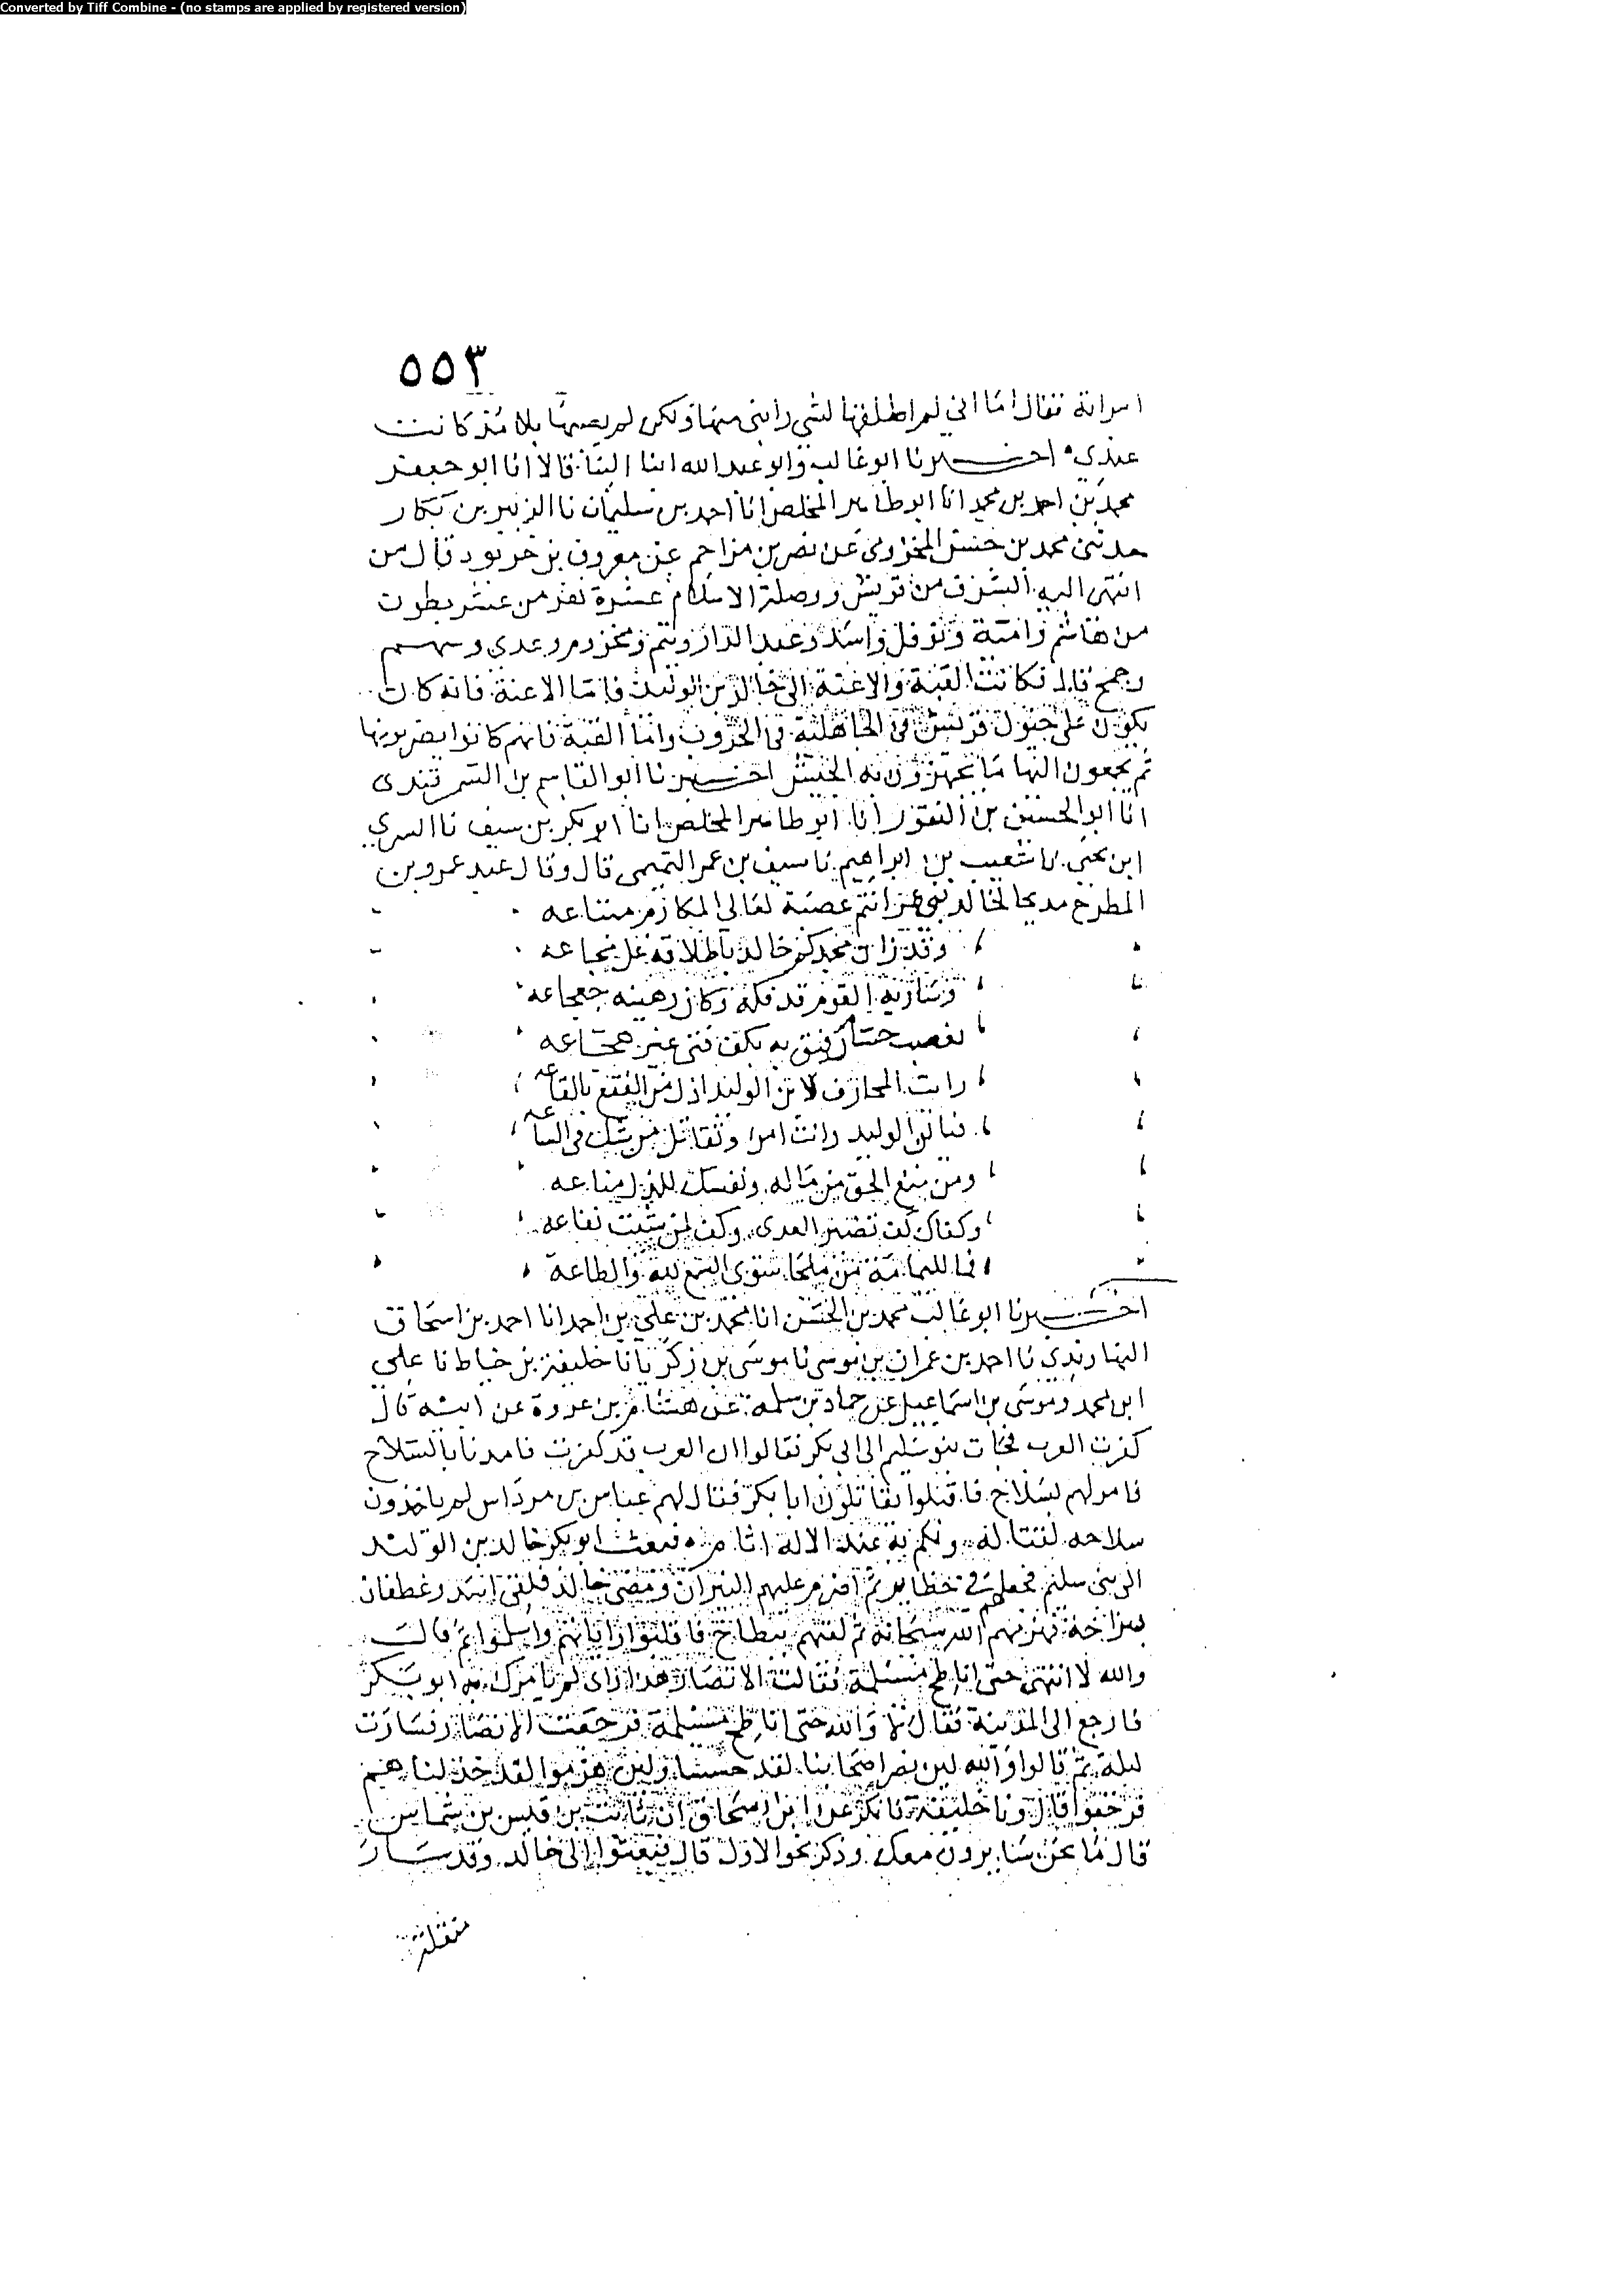 Converted by Tiff Combine - (no stamps are applied by registered version)
٥٥٣
امراته فقال اما اني لم اطلقها لشي رابني منها ولكن لم يصبها بلا مذ كانت
عندي اخبرنا ابو غالب وابو عبد الله ابنا البنا قالا انا ابو جعفر
محمد بن احمد بن محمد انا ابو طاهر المخلص انا احمد بن سليمان نا الزبير بن بكار
حدثني محمد بن حسن المخزومي عن نصر بن مزاحم عن معروف بن خربوذ قال من
انتهى اليه الشرف من قريش ووصله الاسلام عشرة نفر من عشر بطون
من هاشم وامية ونوفل واسد وعبد الدار وتيم ومخزوم وعدي وسهم
وجمح قال فكانت القبة والاعنة الى خالد بن الوليد فاما الاعنة فانه كان
يكون على خيول قريش في الجاهلية في الحروب واما القبة فانهم كانوا يضربونها
ثم يجمعون اليها ما يجهزون به الجيش اخبرنا ابو القاسم بن السمرقندي
انا ابو الحسين بن النقور انا ابو طاهر المخلص انا ابو بكر بن سيف نا السري
ابن يحيى نا شعيب بن ابراهيم نا سيف بن عمر التميمي قال وقال عبد عمرو بن
المطرح مديحا لخالد بني انتم عصبة لفال المكارم مناعه
وقد زان مجدكم خالد باطلاقه غل مجاعه
وسارية القوم قد فكه وكان رهينه جعجاعه
رفيق به بكف فتى غير هجاعه
رايت لابن الوليد اذل من الفقع بالقاعه
فيا بن الوليد وانت امرؤ تقاتل من شك في الساعه
ومن منع الحق من ماله ونفسك للذل مناعه
وكفاك كف تضر العدى وكف لمن شئت نفاعه
فما لليمامة من ملجا سوى السمع لله والطاعة
اخبرنا ابو غالب محمد بن الحسن انا محمد بن علي بن احمد انا احمد بن اسحاق
النهاوندي نا احمد بن عمران بن موسى نا موسى بن زكريا نا خليفة بن خياط نا علي
ابن محمد وموسى بن اسماعيل عن حماد بن سلمة عن هشام بن عروة عن ابيه قال
كفرت العرب فجات بنو سليم الى ابي بكر فقالوا ان العرب قد كفرت فامدنا بالسلاح
فامر لهم بسلاح فاقبلوا يقاتلون ابا بكر فقال لهم عباس بن مرداس لم ياخذون
سلاحه لقتاله ولكم به عند الاله اثام فبعث ابو بكر خالد بن الوليد
الى بني سليم فجعلهم في حظاير ثم اضرم عليهم النيران ومضى خالد فلقي اسد وغطفان
ببزاخة فهزمهم الله سبحانه ثم لقيهم ببطاح فاقلبوا راياتهم واسلموا ثم قال
والله لا انتهى حتى اناطح مسيلمة فقالت الانصار هذا راي لم يامرك به ابو بكر
فارجع الى المدينة فقال لا والله حتى اناطح مسيلمة فرجعت الانصار فسارت
ليلة ثم قالوا والله لين نصر اصحابنا لقد خسسنا ولين هزموا لقد خذلناهم
فرجعوا قال ونا خليفة نا بكر عن ابن اسحاق ان ثابت بن قيس بن شماس
قال ما نحن سايرون معك وذكر نحو الاول قال فبعثوا الى خالد وقد سار